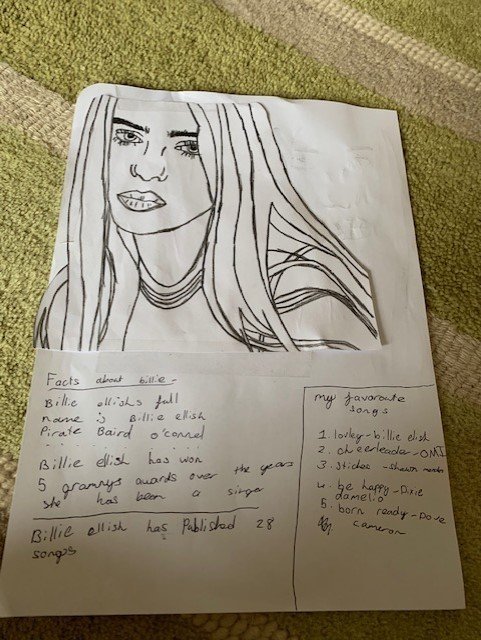 Facts about billie -
Billie ellishs full
name is Billie ellish
Pirate Baird o'connel
Billie ellish has won
5 grammys awards over the years
she has been a singer
Billie ellish has Published 28
songs
my favoraute
songs
1. lovley - billie elish
2. cheerleader - OMI
3. stiches - shawn mendes
4. be happy - Dixie
damelio
5. born ready - Dove
cameron